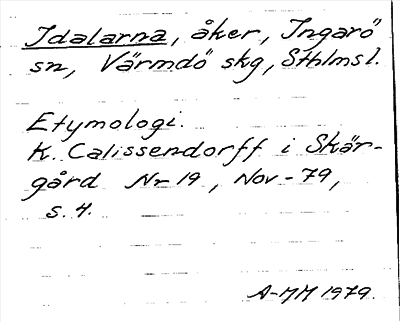 Idalarna, åker, Ingarö
sn, Värmdö skg, Sthlmsl.
Etymologi.
K. Calissendorff i Skär-
gård Nr 19, Nov-79,
s. 4.
A-MM 1979.